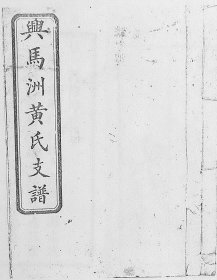 興馬洲黃氏支譜